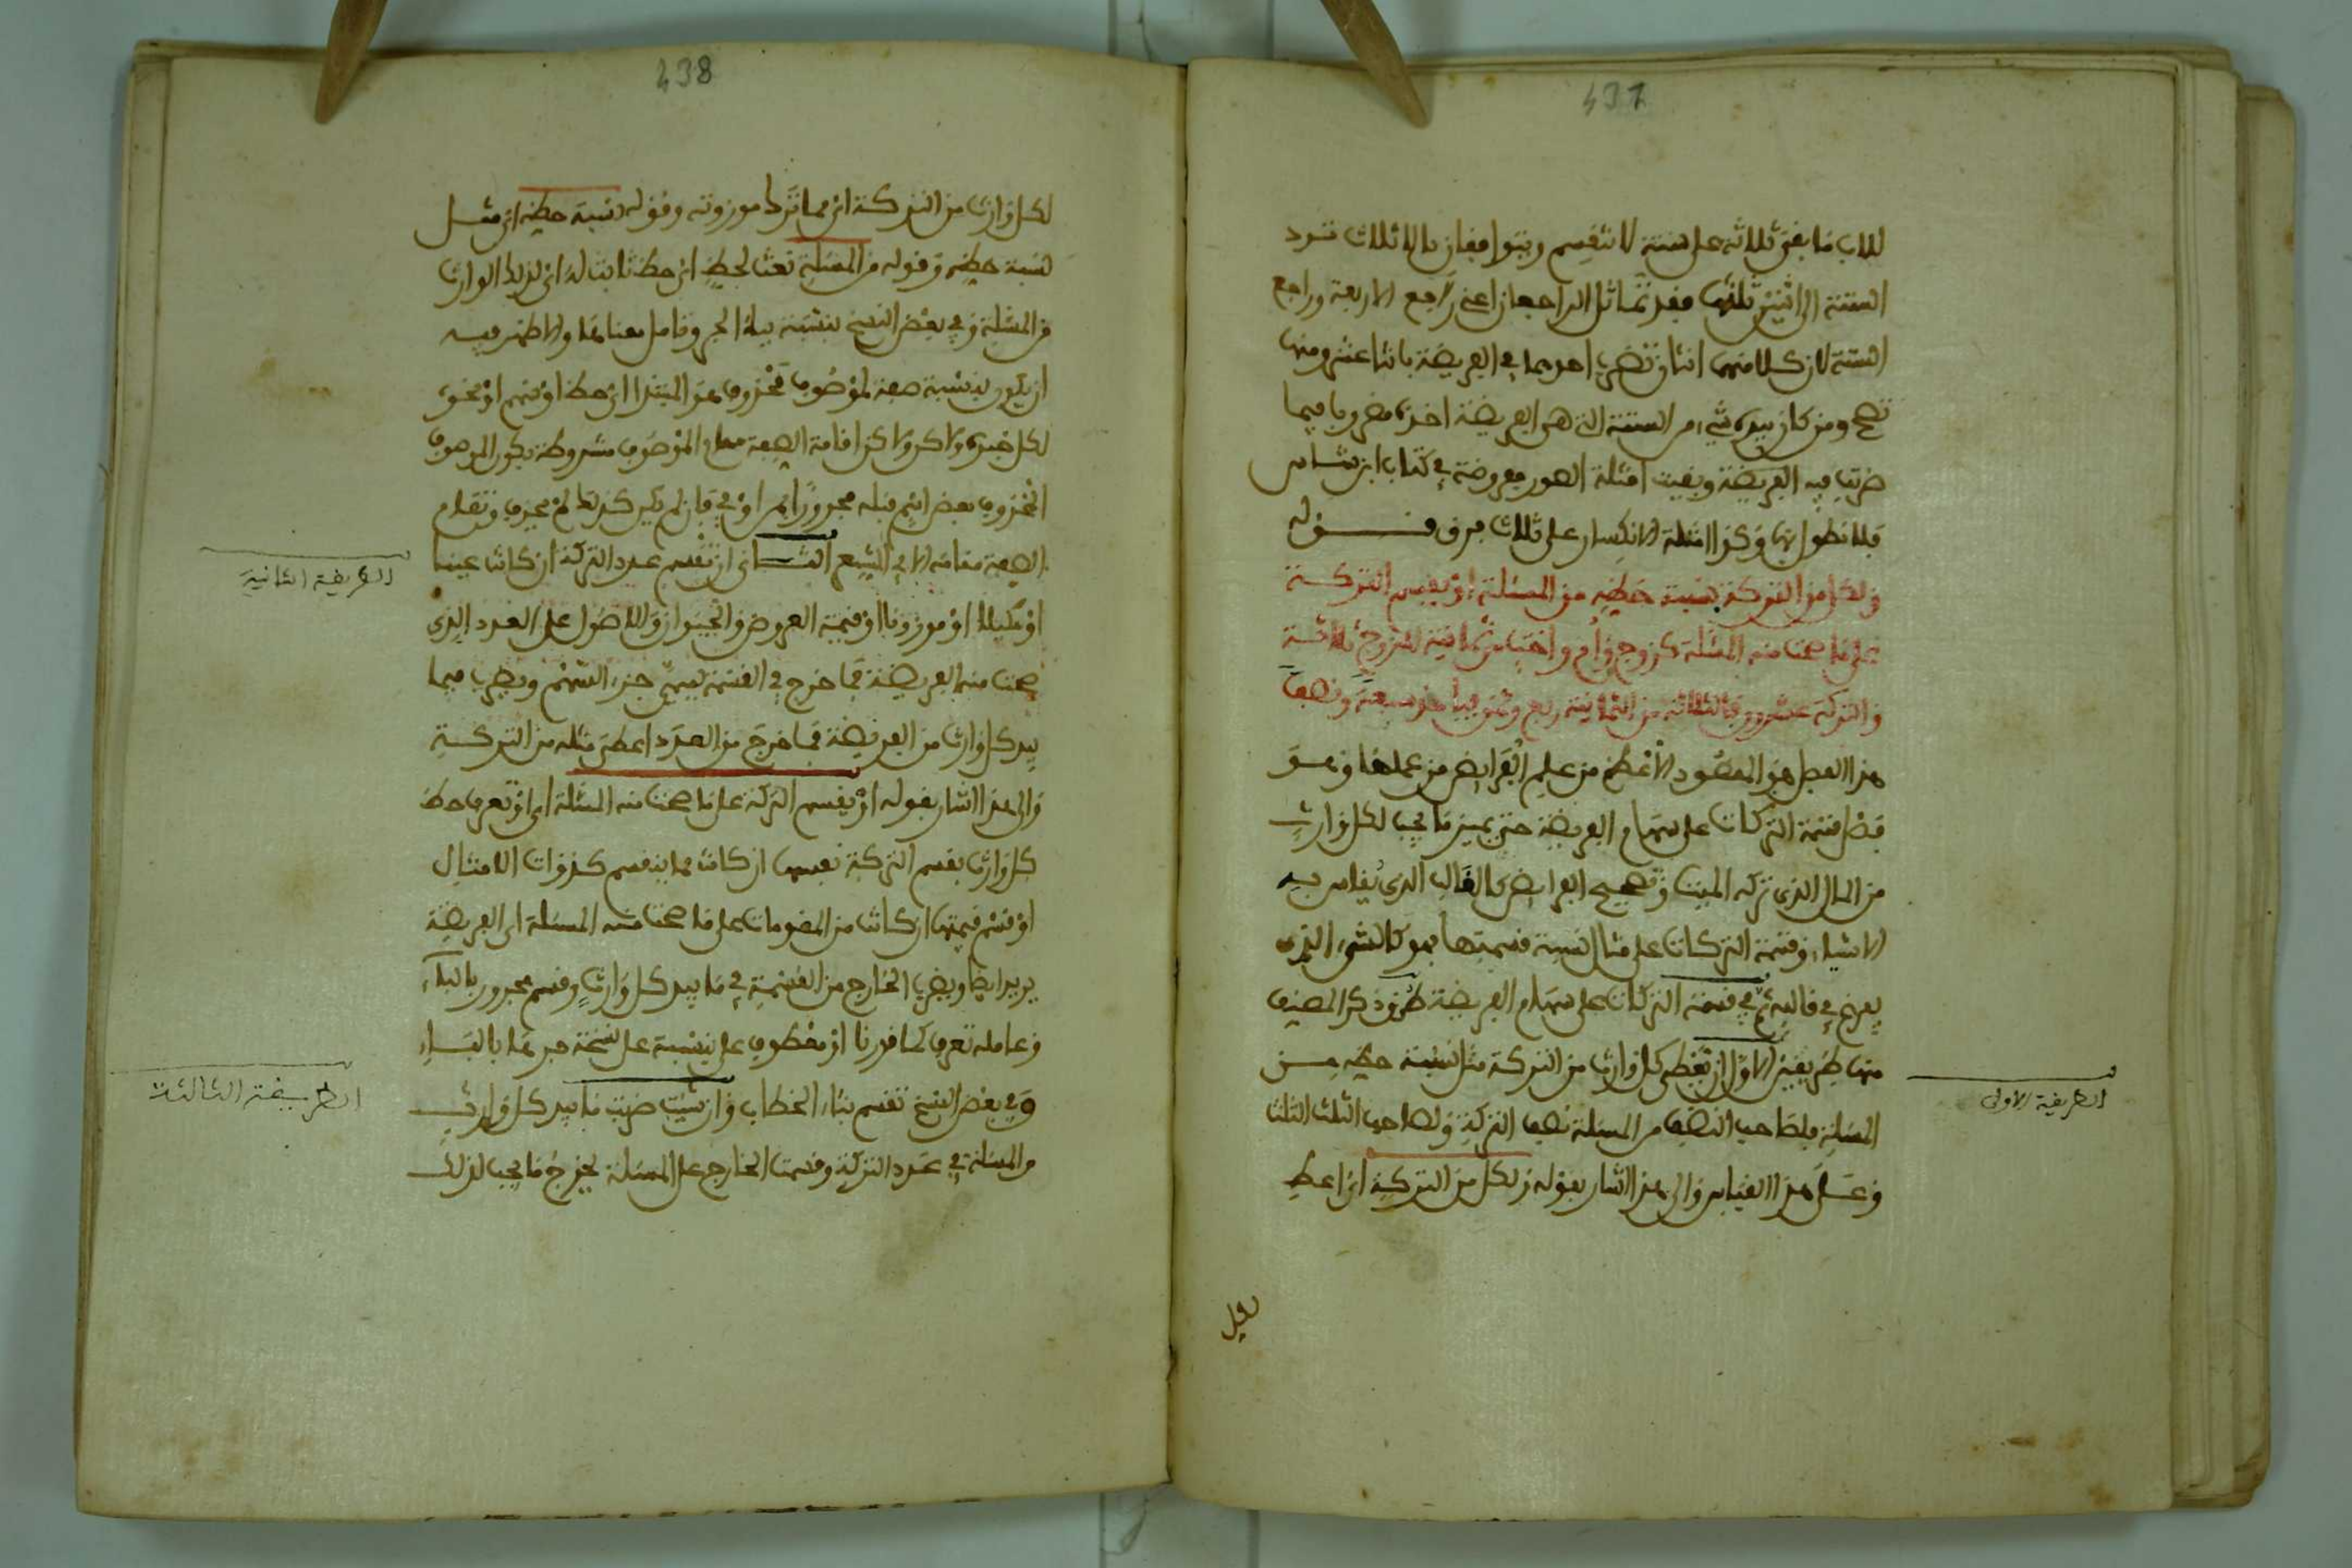 437
للاب ما بقي ثلاثة على ستة لا تنقسم ويتوافقان بالاثلاث فترد
الستة الى اثنين ثلثها فقد تماثل الراجعان اعني راجع الاربعة وراجع
الستة لان كلا منهما اثنان تضرب احدهما في الفريضة باثنا عشر ومنها
تصح ومن كان بيده شيء من الستة التي هي الفريضة اخذه مضروبا فيما
ضربت فيه الفريضة وبقيت امثلة الصور مفروضة في كتاب ابن شاس
فلا نطول بها وكذا امثلة الانكسار على ثلاث فرق قوله
ولكل من التركة بنسبة حظه من المسئلة او تقسم التركة
على ما صحت منه المسئلة كزوج وام واخت من ثمانية للزوج ثلاثة
والتركة عشرون فالثلاثة من الثمانية ربع وثمن فياخذ سبعة ونصفا
هذا الفصل هو المقصود الاعظم من علم الفرايض من عملها وهو
فصل قسمة التركات على سهام الفريضة حتى يتميز ما يجب لكل وارث
من المال الذي تركه الميت وتصحيح الفرايض كالقالب الذي يقاس به
الاشياء وقسمة التركات على مثال نسبة قسمتها هو كالشيء الذي
يفرغ في قالبه ثم في قسمة التركات على سهام الفريضة طرق ذكر المصنف
منها طريقين الاول ان تعطي كل وارث من التركة مثل نسبة حظه من
المسئلة فلصاحب النصف من المسئلة نصف التركة ولصاحب الثلث الثلث
وعلى هذا القياس والى هذا اشار بقوله ولكل من التركة اي اعط
الطريقة الاولى
لكل
438
لكل وارث من التركة اي مما ترك موروثه وقوله بنسبة حظه اي مثل
نسبة حظه وقوله من المسئلة نعت لحظ اي حظ ثابت له اي لذلك الوارث
من المسئلة وفي بعض النسخ بنسبة بباء الجر وتامل معناهما والاظهر فيه
ان يكون بنسبة صفة لموصوف محذوف هو المبتدا اي حظ او قسم او نحو
لكل خبره ولاكن اقامة الصفة مقام الموصوف مشروطة بكون الموصوف
المحذوف بعض اسم قبله مجرورا بمن او في فان لم يكن كذلك لم يحذف وتقام
الصفة مقامه الا في الشعر الثاني ان تقسم عدد التركة ان كانت عينا
او مكيلا او موزونا او قيمة العروض والحيوان والاصول على العدد الذي
صحت منه الفريضة فما خرج في القسمة يسمى جزء السهم ويضرب فيما
بيد كل وارث من الفريضة فما خرج من العدد اعطي مثله من التركة
والى هذا اشار بقوله او تقسم التركة على ما صحت منه المسئلة اي او تعرف حظ
كل وارث بقسم التركة نفسها ان كانت مما ينقسم كذوات الامثال
او قسم قيمتها ان كانت من المقومات على ما صحت منه المسئلة اي الفريضة
يريد ايضا ويضرب الخارج من القسمة في ما بيد كل وارث وقسم مجرور بالباء
وعامله تعرف كما قررنا او معطوف على بنسبة على نسخة جرها بالباء
وفي بعض النسخ تقسم بتاء الخطاب وان شئت ضربت ما بيد كل وارث
من المسئلة في عدد التركة وقسمت الخارج على المسئلة يخرج ما يجب لذلك
الطريقة الثانية
الطريقة الثالثة